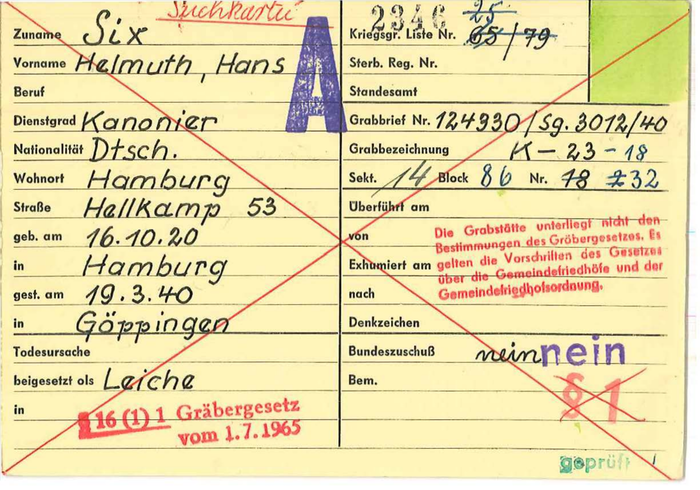 Suchkartei
2346
25
Zuname Six
Kriegsgr. Liste Nr. 65/79
Vorname Helmuth, Hans
Sterb. Reg. Nr.
A
Beruf
Standesamt
Dienstgrad Kanonier
Grabbrief Nr. 124930/Sg. 3012/40
Nationalität Dtsch.
Grabbezeichnung K-23-18
Wohnort Hamburg
Sekt. 14 Block 86 Nr. 18 232
Straße Hellkamp 53
Überführt am
geb. am 16.10.20
von
Die Grabstätte unterliegt nicht den
Bestimmungen des Gräbergesetzes. Es
gelten die Vorschriften des Gesetzes
über die Gemeindefriedhöfe und der
Gemeindefriedhofsordnung.
in Hamburg
Exhumiert am
gest. am 19.3.40
nach
in Göppingen
Denkzeichen
Todesursache
Bundeszuschuß nein nein
beigesetzt als Leiche
Bem.
§ 1
in
§ 16 (1) 1 Gräbergesetz
vom 1.7.1965
geprüft